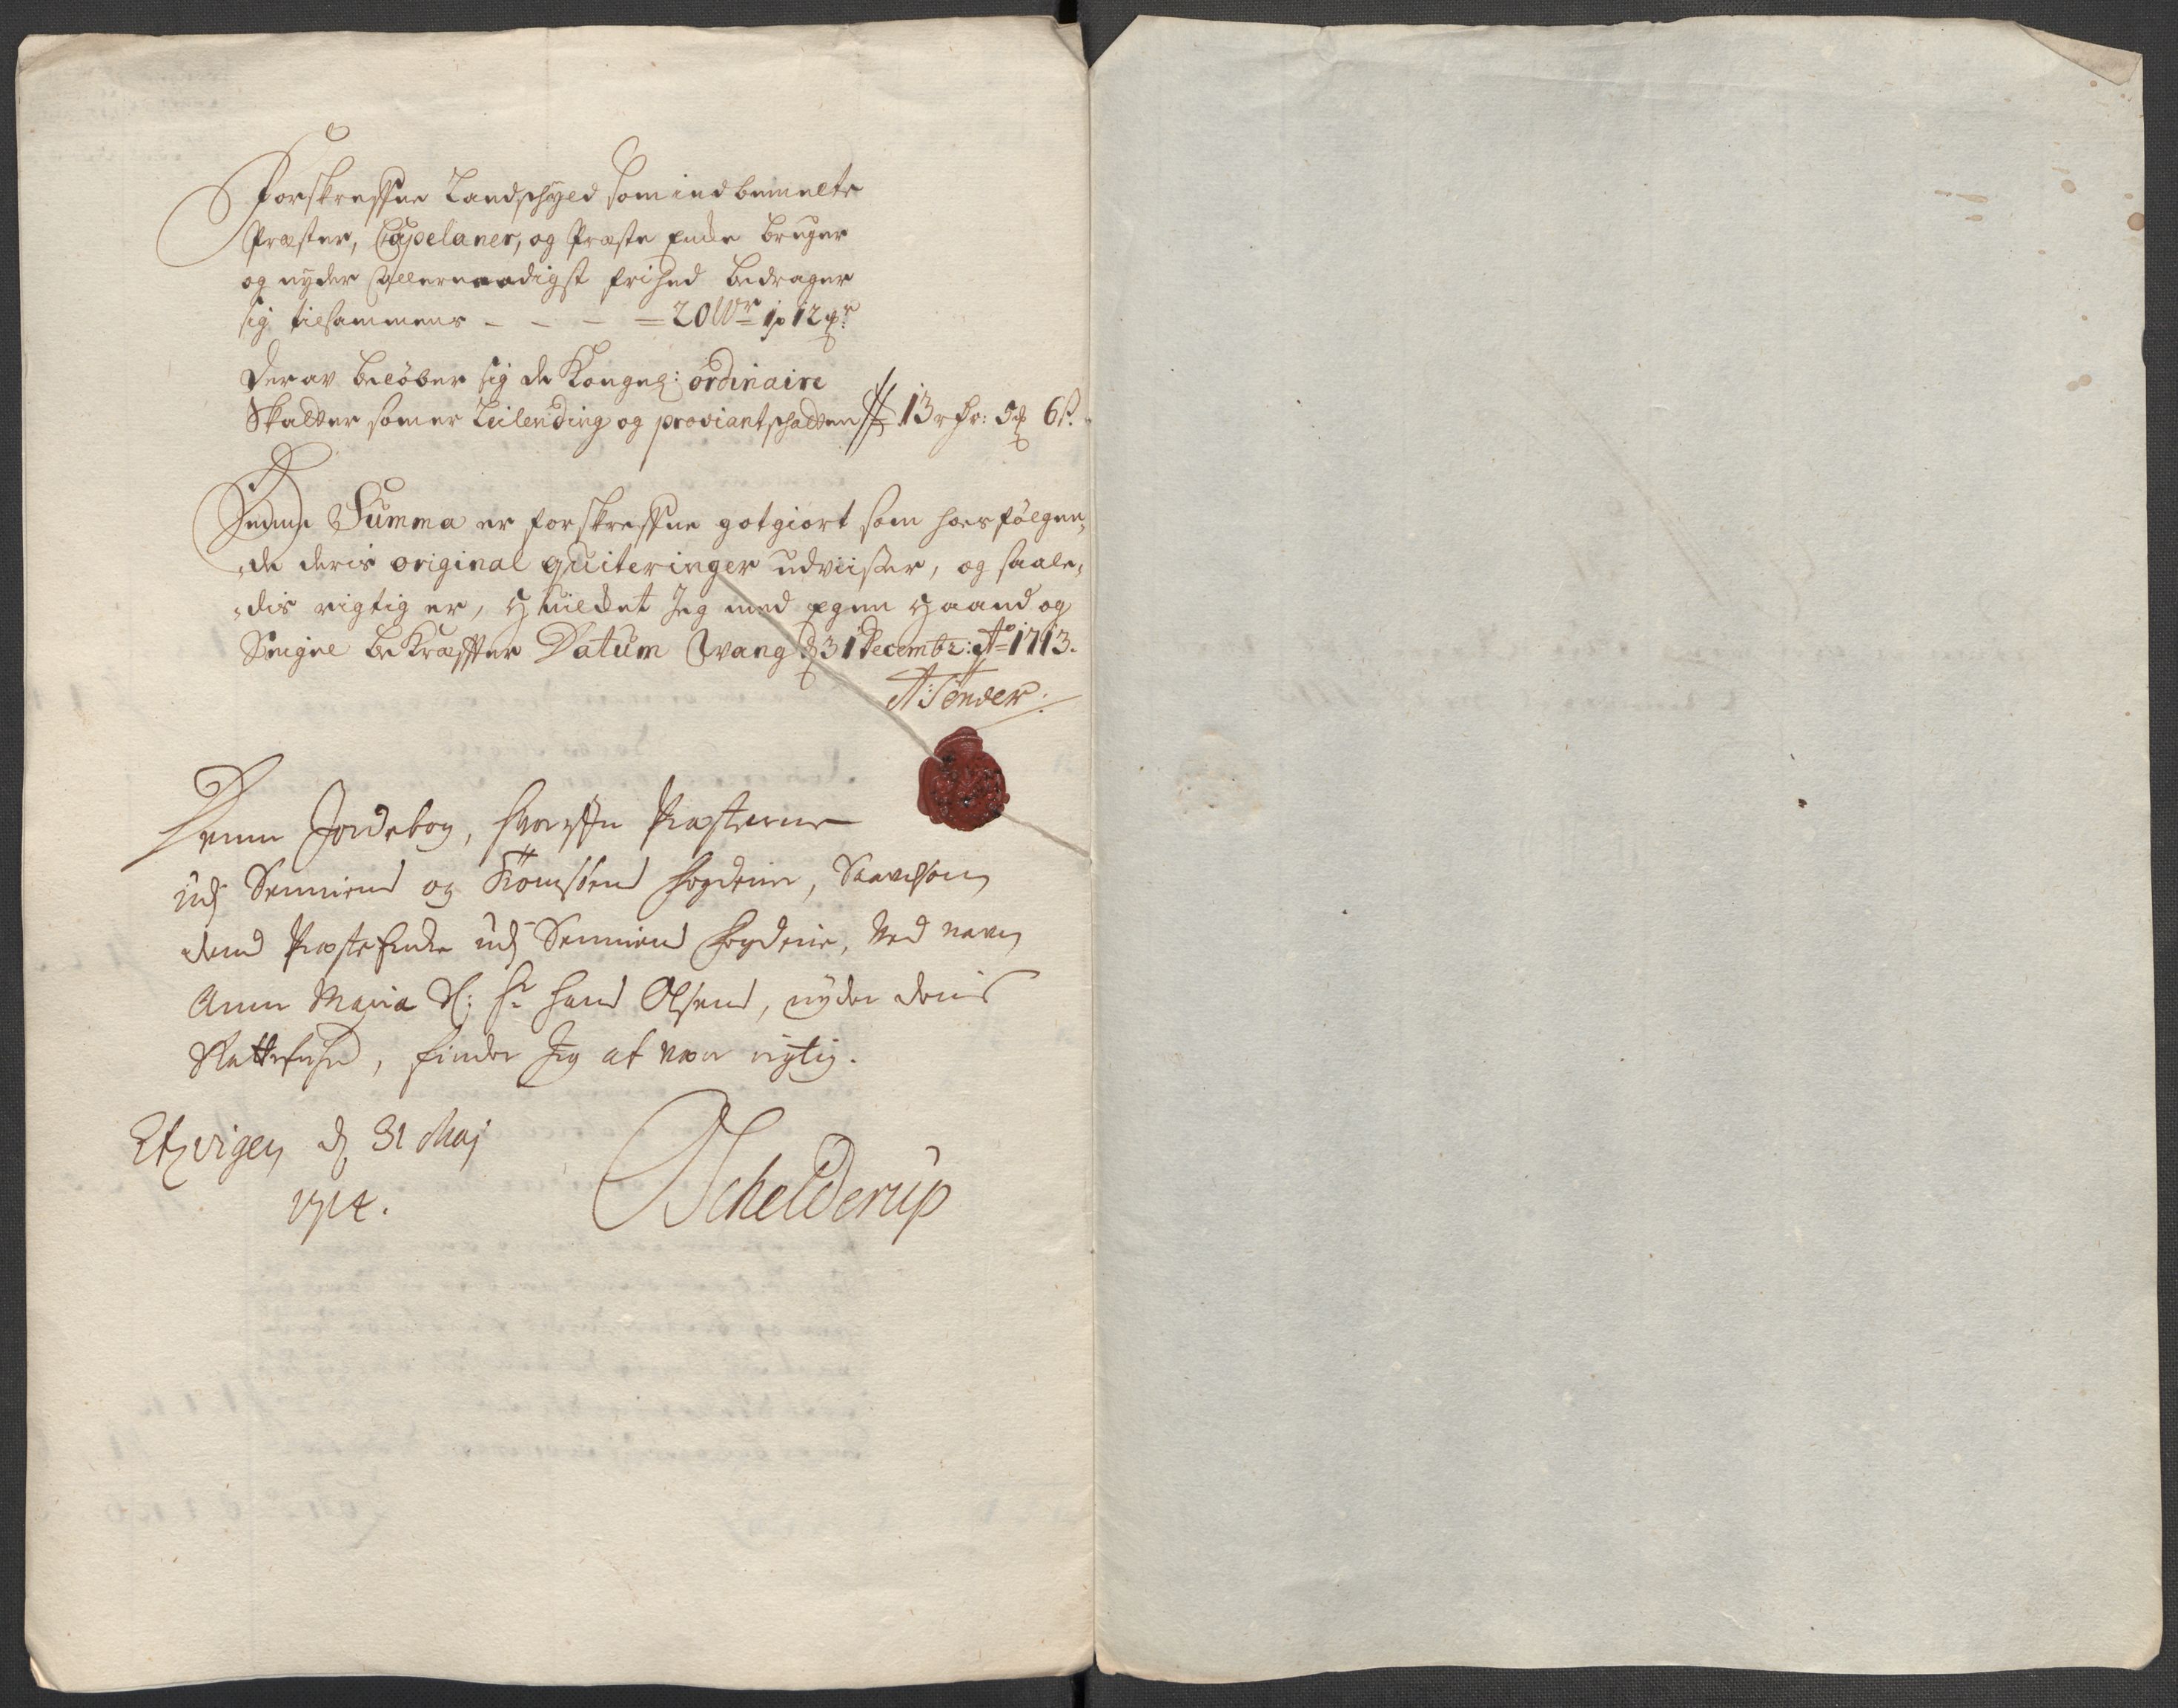 Forskrefne Landschyld som indbemelte
Præster, Capelaner, og Præste Encke bruger
og nyder allernaadigst frihed bedrager
sig tilsammens - - - = 20 W 1 p 12
Derav beløber sig de Kongel: ordinaire
Skatter som er Leilending og proviantschatten 13 rdr: 5 6 s.
Denne Summa er forskrefne gotgiort som hosfølgen,
,de deris original quiteringer udviiser, og saale,
,dis rigtig er, Huilcket Jeg med Egen Haand og
Seigne bekræffter Datum Wang d 31 Decembr: Ao 1713.
A: Tønder:
Denne Jordebog, hvoreffter Præsterne
udj Senniens og Tromsøens fogderie,
dend Præste Encke udj Senniens fogderie, Ved navn
Anne Maria Sl: Hr Hans Olsens, nyder deris
Skattefrihed, finder Jeg at være rigtig.
Elgvigen d 31 Maj
1714.
Schelderup